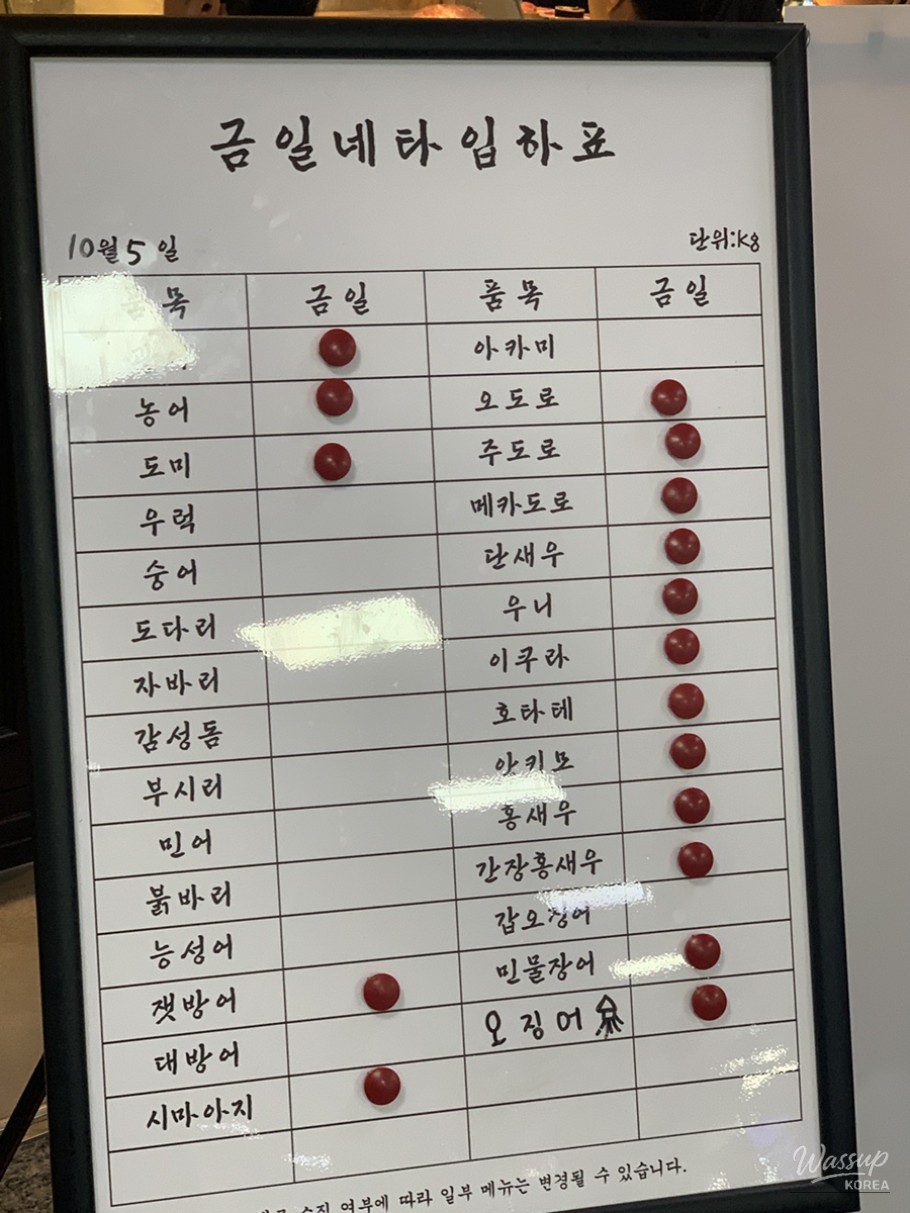 금일네타입하표
10월 5일 단위:kg
목 금일 품목 금일
아카미
농어 오도로
도미 주도로
우럭 메카도로
숭어 단새우
도다리 우니
자바리 이쿠라
감성돔 호타테
부시리 안키모
민어 홍새우
붉바리 간장홍새우
능성어 갑오징어
잿방어 민물장어
대방어 오징어
시마아지
수급 여부에 따라 일부 메뉴는 변경될 수 있습니다.
Wassup
KOREA